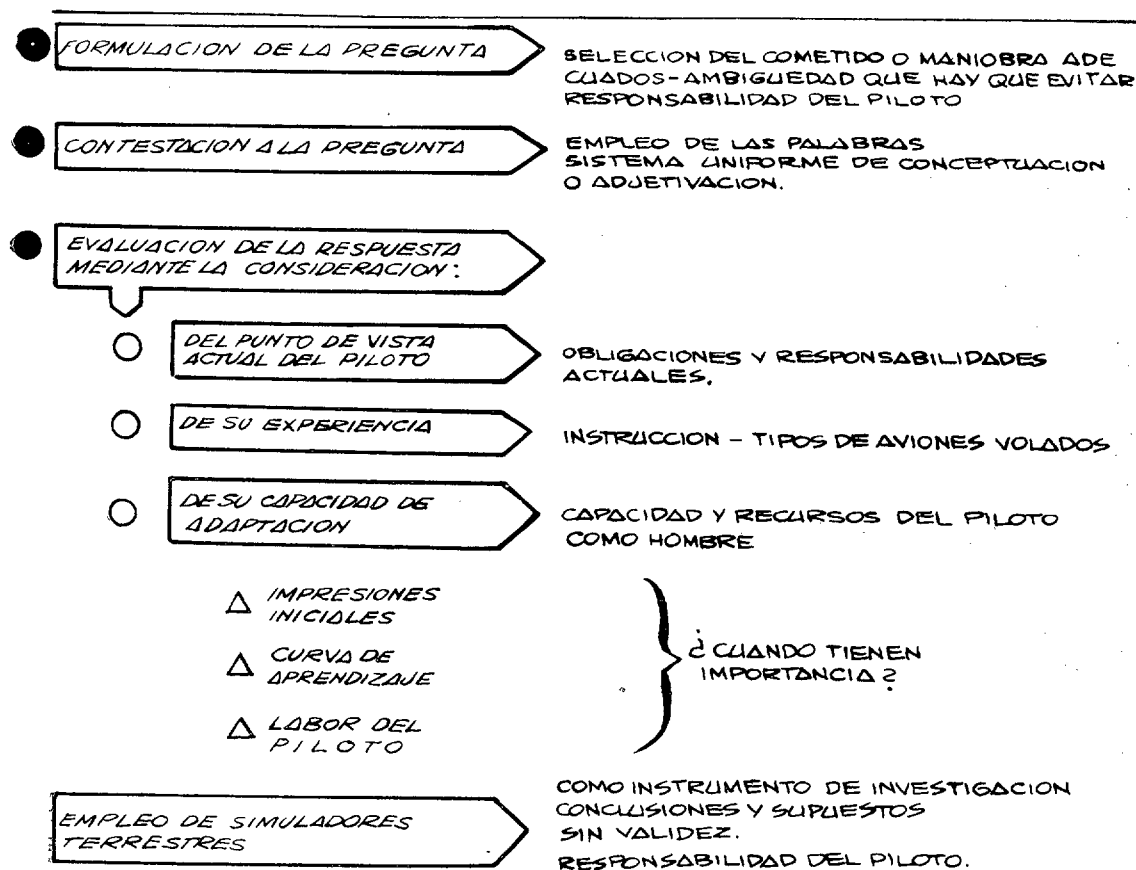 FORMULACION DE LA PREGUNTA
SELECCION DEL COMETIDO O MANIOBRA ADE
CUADOS-AMBIGUEDAD QUE HAY QUE EVITAR
RESPONSABILIDAD DEL PILOTO
CONTESTACION A LA PREGUNTA
EMPLEO DE LAS PALABRAS
SISTEMA UNIFORME DE CONCEPTUACION
O ADJETIVACION.
EVALUACION DE LA RESPUESTA
MEDIANTE LA CONSIDERACION:
DEL PUNTO DE VISTA
ACTUAL DEL PILOTO
OBLIGACIONES Y RESPONSABILIDADES
ACTUALES.
DE SU EXPERIENCIA
INSTRUCCION - TIPOS DE AVIONES VOLADOS
DE SU CAPACIDAD DE
ADAPTACION
CAPACIDAD Y RECURSOS DEL PILOTO
COMO HOMBRE
IMPRESIONES
INICIALES
CURVA DE
APRENDIZAJE
LABOR DEL
PILOTO
¿CUANDO TIENEN
IMPORTANCIA?
EMPLEO DE SIMULADORES
TERRESTRES
COMO INSTRUMENTO DE INVESTIGACION
CONCLUSIONES Y SUPUESTOS
SIN VALIDEZ.
RESPONSABILIDAD DEL PILOTO.